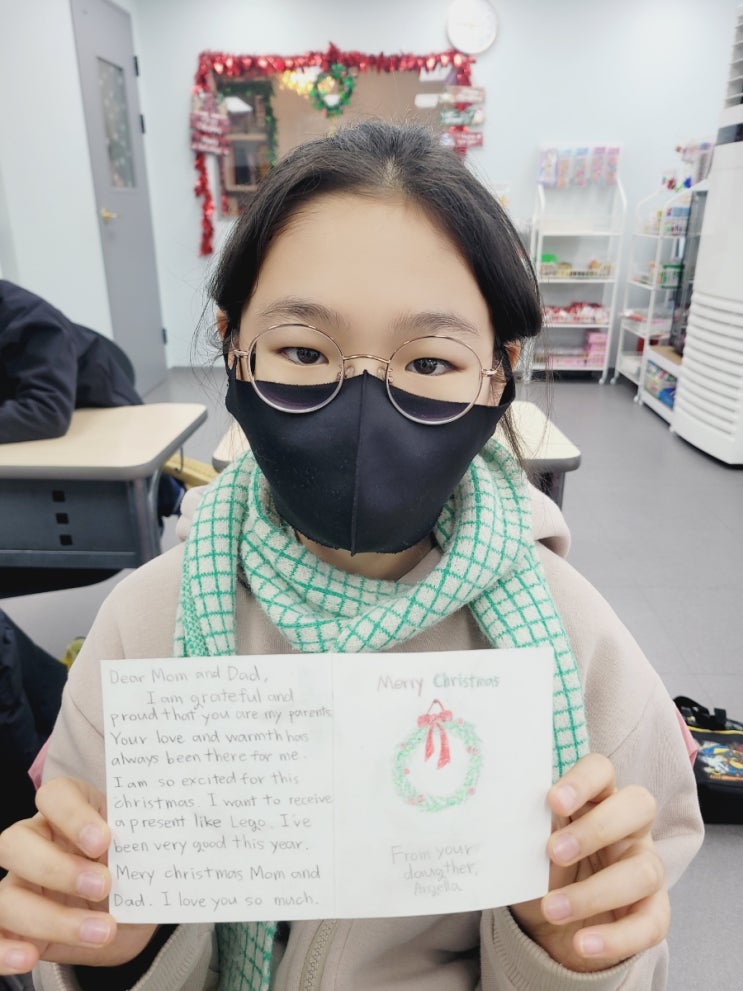 Dear Mom and Dad,
I am grateful and
proud that you are my parents
Your love and warmth has
always been there for me.
I am so excited for this
christmas. I want to receive
a present like Lego. I've
been very good this year.
Mery christmas Mom and
Dad. I love you so much.
Merry Christmas
From your
daugther,